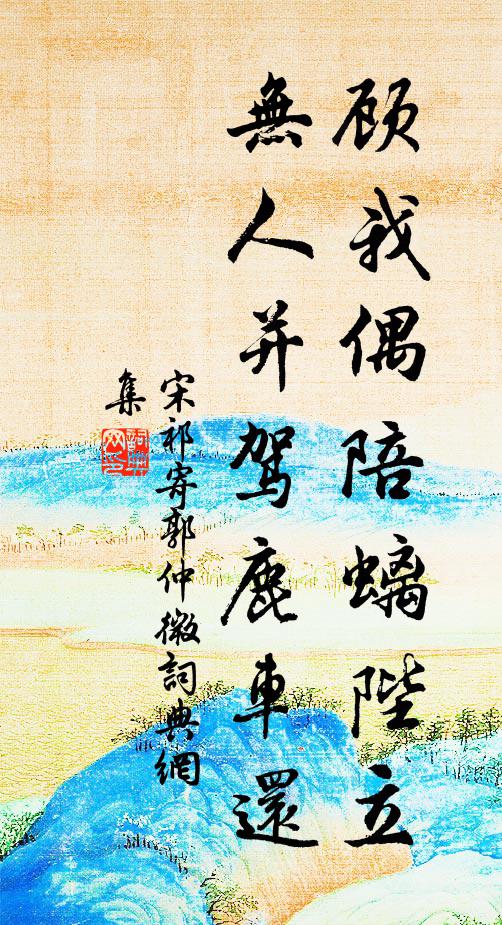 顾我偶陪螭陛立
無人并駕鹿車還
宋祁寄郭仲微詞典網
集